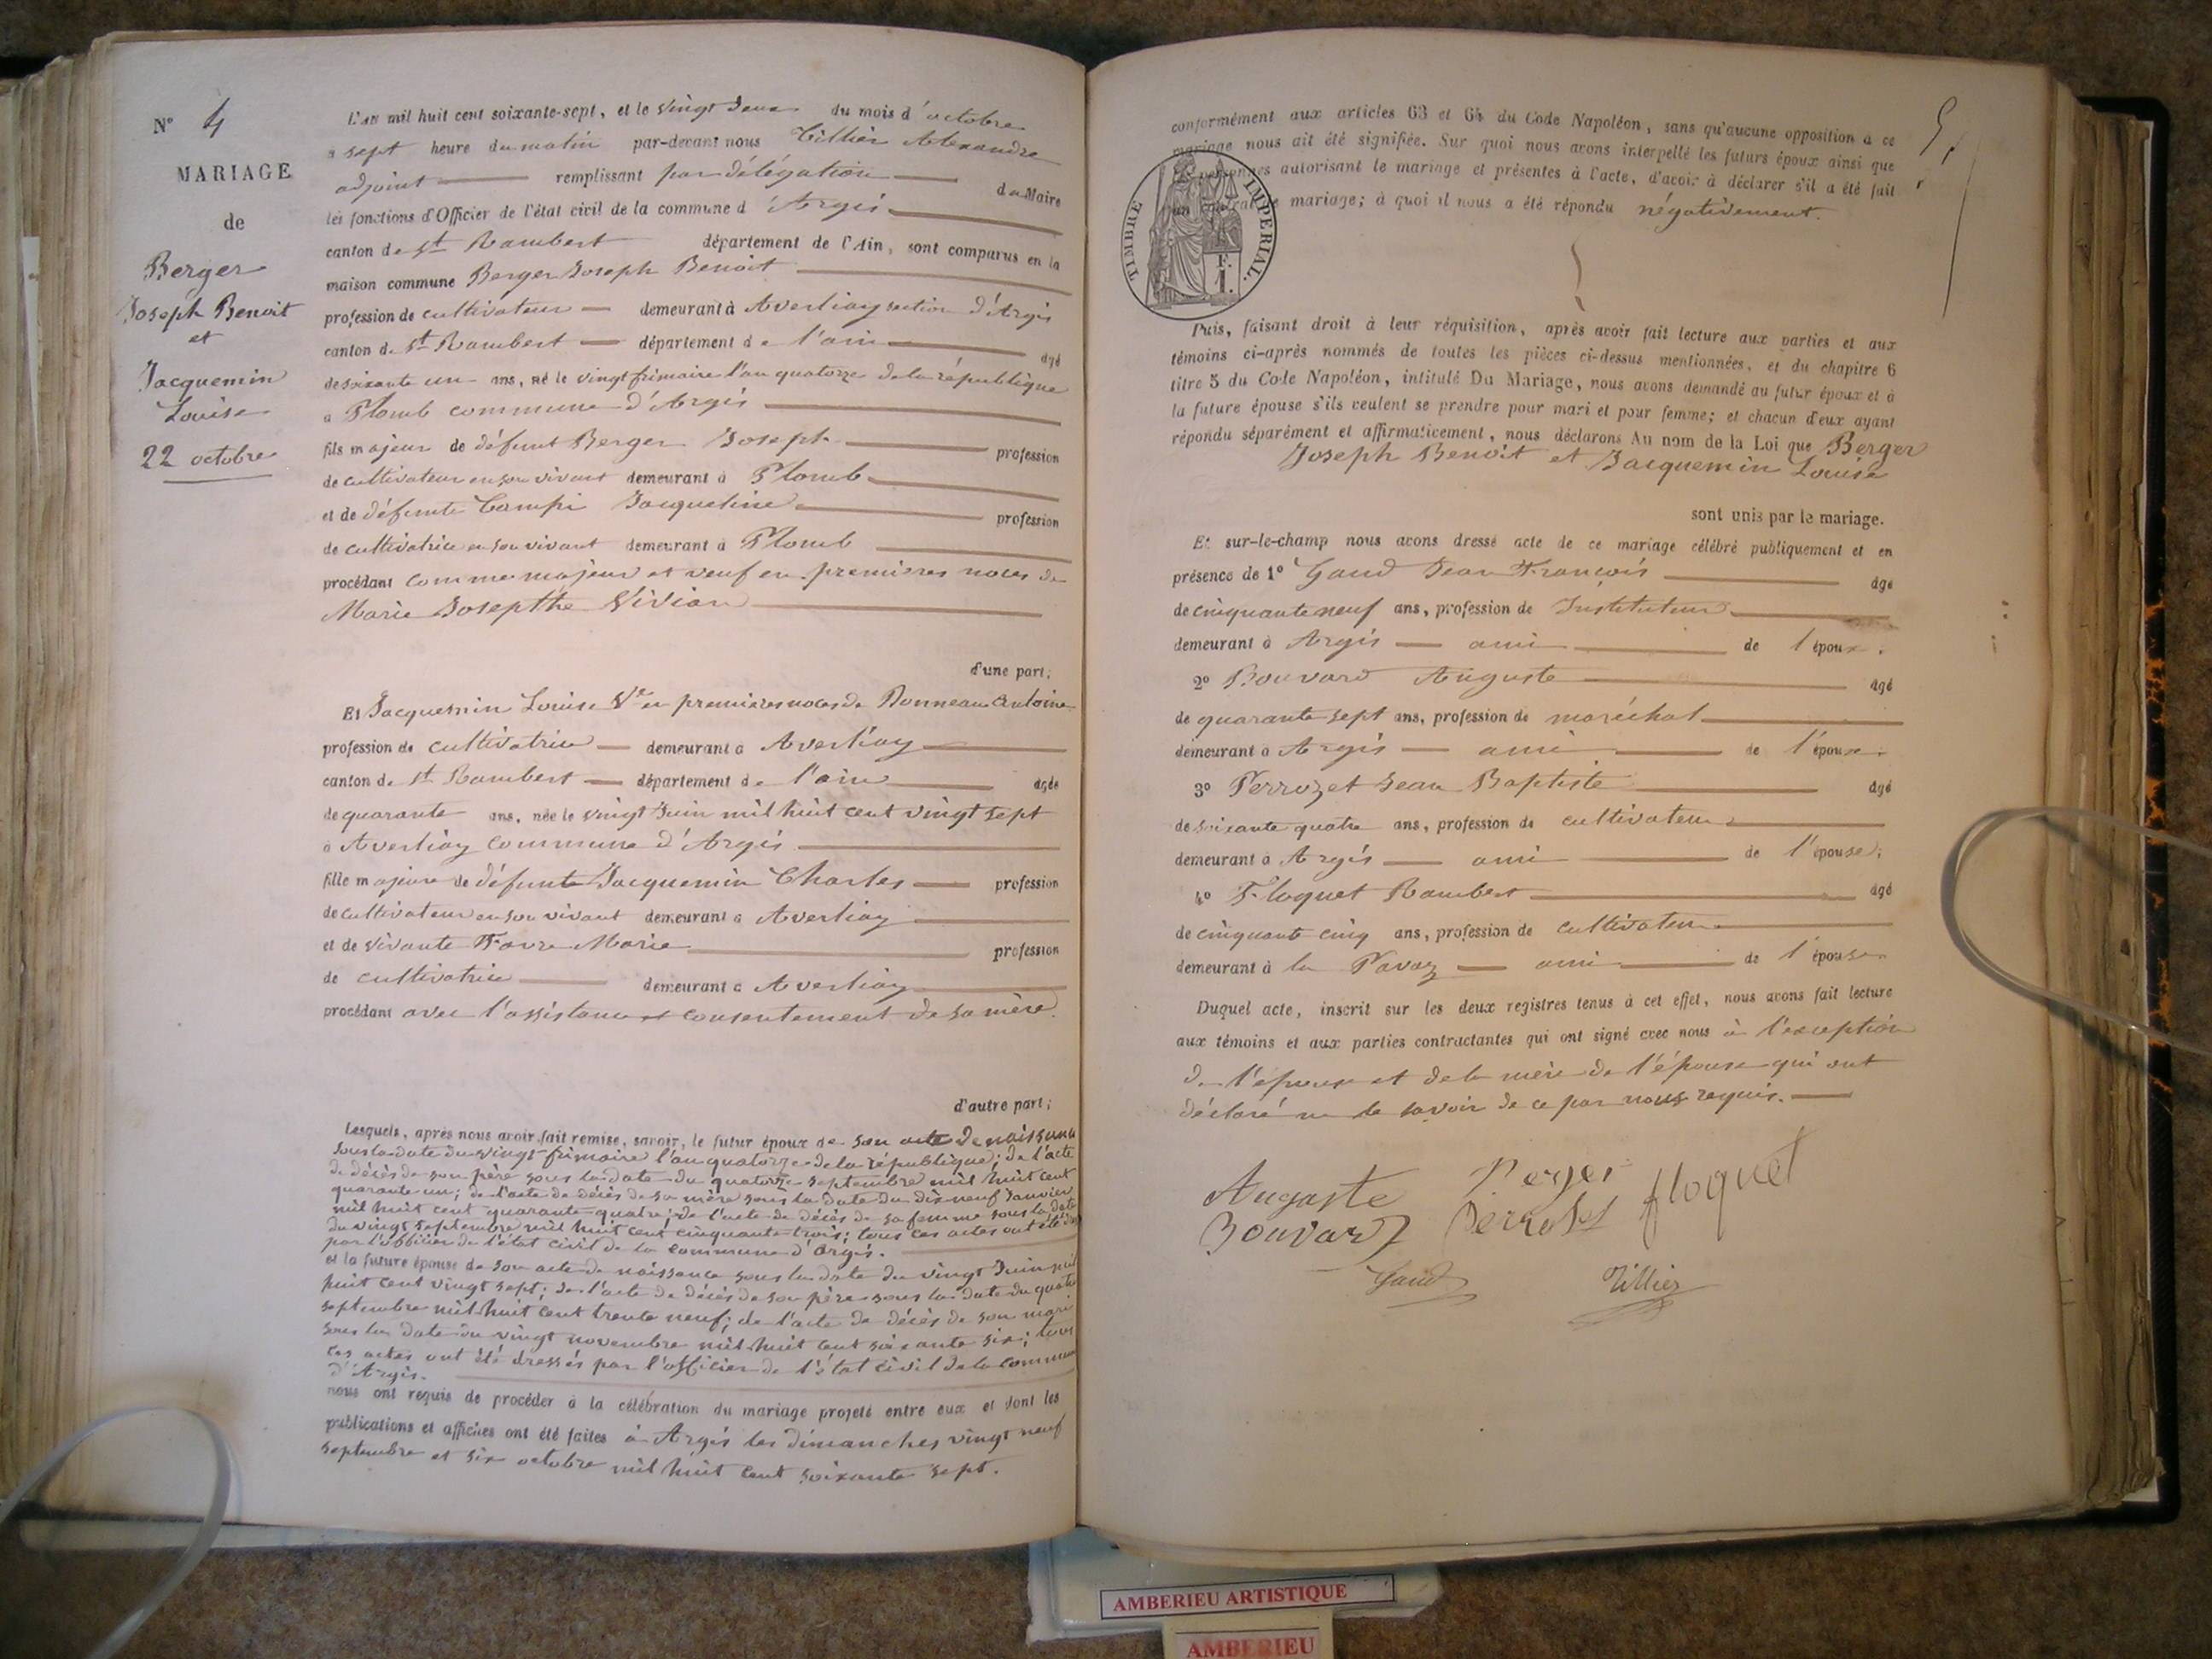 N° 4
MARIAGE
de
Berger
Joseph Benoit
et
Jacquemin
Louise
22 octobre
L'an mil huit cent soixante-sept, et le vingt deux du mois d'octobre
à sept heure du matin par-devant nous Tillier Alexandre
adjoint remplissant par délégation du Maire
les fonctions d'Officier de l'état civil de la commune d'Argis
canton de St Rambert département de l'Ain, sont comparus en la
maison commune Berger Joseph Benoit
profession de cultivateur demeurant à Averliaz section d'Argis
canton de St Rambert département de l'ain âgé
de soixante un ans, né le vingt frimaire l'an quatorze de la république
à Plomb commune d'Argis
fils majeur de défunt Berger Joseph profession
de cultivateur en son vivant demeurant à Plomb
et de défunte Campi Jacqueline profession
de cultivatrice en son vivant demeurant à Plomb
procédant comme majeur et veuf en premières noces de
Marie Josepthe Vivian
d'une part;
Et Jacquemin Louise Ve en premières noces de Bonneau Antoine
profession de cultivatrice demeurant à Averliaz
canton de St Rambert département de l'ain âgée
de quarante ans, née le vingt Juin mil huit cent vingt sept
à Averliaz commune d'Argis
fille majeure de défunt Jacquemin Charles profession
de cultivateur en son vivant demeurant à Averliaz
et de vivante Favre Marie profession
de cultivatrice demeurant à Averliaz
procédant avec l'assistance et consentement de sa mère.
d'autre part;
Lesquels, après nous avoir fait remise, savoir, le futur époux de son acte de naissance
sous la date du vingt frimaire l'an quatorze de la république; de l'acte
de décès de son père sous la date du quatorze septembre mil huit cent
quarante un; de l'acte de décès de sa mère sous la date du dix neuf Janvier
mil huit cent quarante quatre; de l'acte de décès de sa femme sous la date
du vingt septembre mil huit cent cinquante trois; tous ces actes ont été
par l'officier de l'état civil de la commune d'Argis.
et la future épouse de son acte de naissance sous la date du vingt Juin mil
huit cent vingt sept; de l'acte de décès de son père sous la date du quatre
septembre mil huit cent trente neuf; de l'acte de décès de son mari
sous la date du vingt novembre mil huit cent soixante six; tous
ces actes ont été dressés par l'officier de l'état civil de la commune
d'Argis.
nous ont requis de procéder à la célébration du mariage projeté entre eux et dont les
publications et affiches ont été faites à Argis les dimanches vingt neuf
septembre et six octobre mil huit cent soixante sept.
conformément aux articles 63 et 64 du Code Napoléon, sans qu'aucune opposition à ce
mariage nous ait été signifiée. Sur quoi nous avons interpellé les futurs époux ainsi que
personnes autorisant le mariage et présentes à l'acte, d'avoir à déclarer s'il a été fait
mariage; à quoi il nous a été répondu négativement.
TIMBRE IMPERIAL.
F.
1.
Puis, faisant droit à leur réquisition, après avoir fait lecture aux parties et aux
témoins ci-après nommés de toutes les pièces ci-dessus mentionnées, et du chapitre 6
titre 5 du Code Napoléon, intitulé Du Mariage, nous avons demandé au futur époux et à
la future épouse s'ils veulent se prendre pour mari et pour femme; et chacun d'eux ayant
répondu séparément et affirmativement, nous déclarons Au nom de la Loi que Berger
Joseph Benoit et Jacquemin Louise
sont unis par le mariage.
Et sur-le-champ nous avons dressé acte de ce mariage célébré publiquement et en
présence de 1° Gaud Jean François âgé
de cinquante neuf ans, profession de Instituteur
demeurant à Argis ami de l'époux.
2° Bouvard Auguste âgé
de quarante sept ans, profession de maréchal
demeurant à Argis ami de l'époux.
3° Perrozet Jean Baptiste âgé
de soixante quatre ans, profession de cultivateur
demeurant à Argis ami de l'épouse;
4° Floquet Rambert âgé
de cinquante cinq ans, profession de cultivateur
demeurant à la Pavaz ami de l'épouse
Duquel acte, inscrit sur les deux registres tenus à cet effet, nous avons fait lecture
aux témoins et aux parties contractantes qui ont signé avec nous à l'exception
de l'épouse et de la mère de l'épouse qui ont
déclaré ne le savoir de ce par nous requis.
Auguste Berger floquet
Bouvard Perrozet
Gaud Tillier
AMBERIEU ARTISTIQUE
AMBERIEU